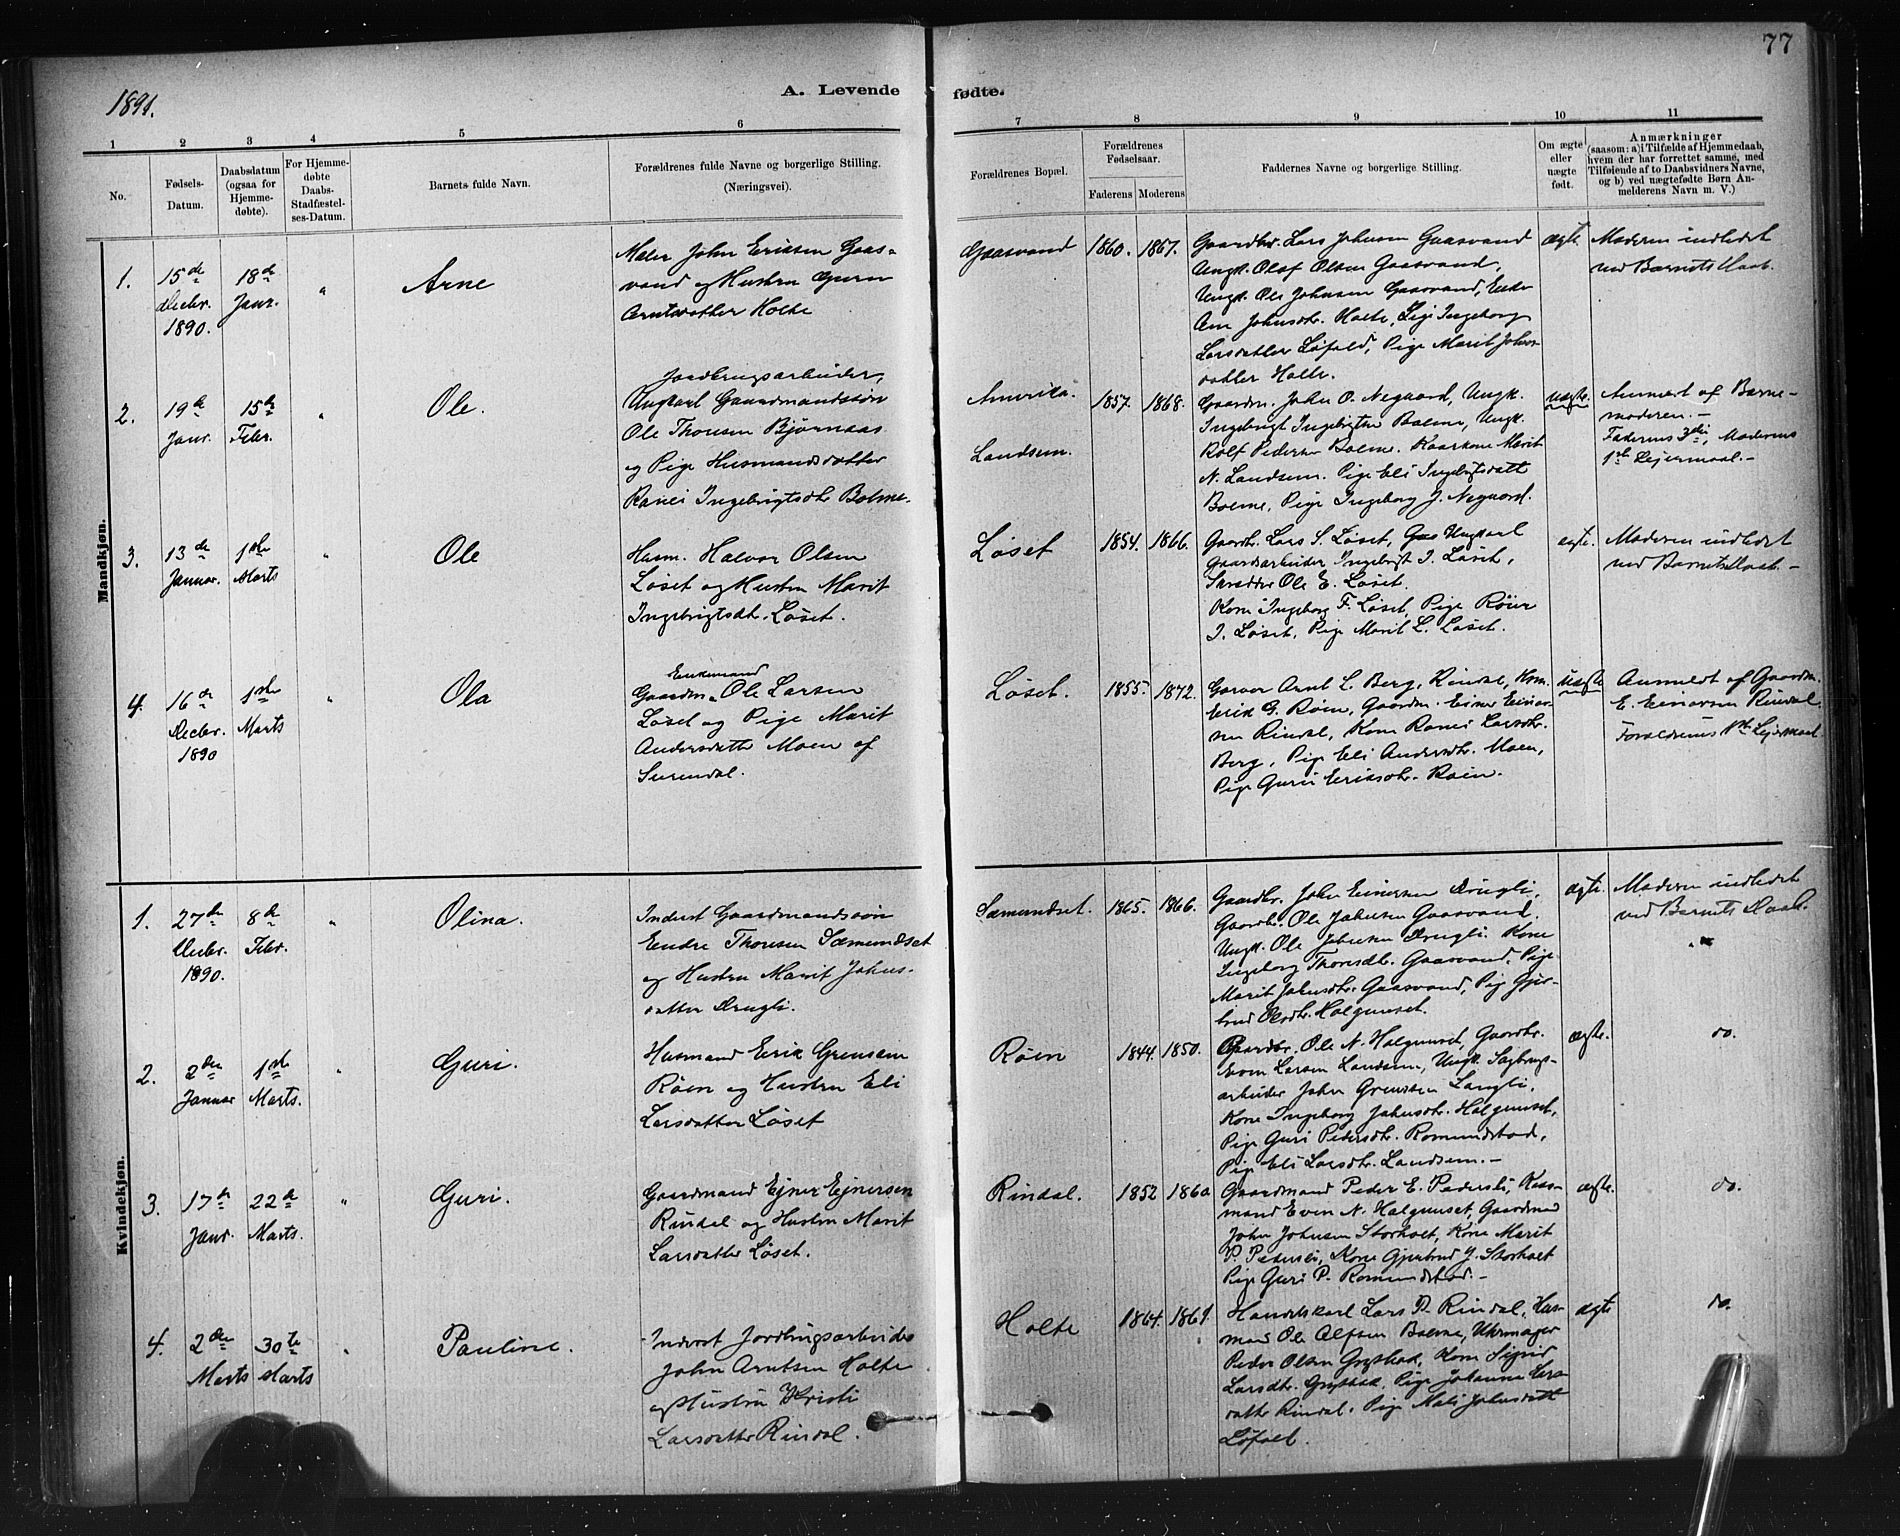 77
1891.
A. Levende fødte.
1 2 3 4 5 6 7 8 9 10 11
No.
Fødsels-Datum.
Daabsdatum (ogsaa for Hjemme-døbte).
For Hjemme-døbte Daabs-Stadfæstel-ses-Datum.
Barnets fulde Navn.
Forældrenes fulde Navne og borgerlige Stilling. (Næringsvei).
Forældrenes Bopæl.
Forældrenes Fødselsaar.
Faderens Moderens
Faddernes Navne og borgerlige Stilling.
Om ægte eller uægte født.
Anmærkninger (saasom: a) i Tilfælde af Hjemmedaab, hvem der har forrettet samme, med Tilføiende af to Daabsvidners Navne, og b) ved uægtefødte Børn Anmelderens Navn m. V.)
Mandkjøn.
1.
15de Decbr. 1890.
18de Janr.
"
Arne
Maler John Eriksen Gaas-
vand og Hustru Guru
Arntsdatter Holte
Gaasvand
1860. 1867.
Gaardbr. Lars Johnsen Gaasvand
Ungk. Olaf Olsen Gaasvand,
Ungk. Ole Johnsen Gaasvand, Enke
Ane Johnsdtr. Holte, Pige Ingeborg
Larsdatter Løfald, Pige Marit Johns-
datter Holte.
ægte
Moderen indledet
ved Barnets Daab.
2.
19de Janr.
15de Febr.
"
Ole.
Jordbrugsarbeider,
Ungkarl Gaardmandssøn
Ole Thoresen Bjørnaas
og Pige Husmandsdatter
Ranei Ingebrigtsdtr Bolme.
Amerika.
Landsem.
1857. 1868.
Gaardm. John O. Negaard, Ungk.
Ingebrigt Ingebrigtsen Bolme, Ungk.
Rolf Pedersen Bolme. Kaarkone Marit
N. Landsem. Pige Eli Ingebrigtsdatt
Bolme, Pige Ingeborg J. Negaard.
uægte.
Anmeldt af Barne-
moderen.-
Faderens 3die, Moderens
1ste Leiermaal.-
3.
13de Januar.
1ste Marts
"
Ole
Husm. Halvor Olsen
Løset og Hustru Marit
Ingebrigtsdt. Løset.
Løset
1854. 1866.
Gaardb. Lars S. Løset, Ungkarl
Gaardsarbeider Ingebrigt I. Løset,
Skrædder Ole E. Løset
Kone Ingeborg F. Løset, Pige Røier
I. Løset, Pige Marit L. Løset.
ægte.
Moderen indledet
ved Barnets Daab.-
4.
16de Decbr. 1890
1ste Marts
"
Ola
Enkemand
Gaardm. Ole Larsen
Løset og Pige Marit
Andersdatter Moen af
Surendal.
Løset.
1855. 1872.
Garver Arnt L. Berg, Rindal, Kom.
Erik G. Røen, Gaardm. Einer Einer-
sen Rindal, Kone Ranei Larsdtr.
Berg, Pige Eli Andersdtr. Moen,
Pige Guru Eriksdtr. Røen.
uægte
Anmeldt af Gaardm.
E. Einersen Rindal.
Forældrenes 1ste Leiermaal.
Kvindekjøn.
1.
27de Decbr. 1890.
8de Febr.
"
Olina.
Inderst Gaardmandssøn
Endre Thoresen Sæmundset
og Hustru Marit Johns-
datter Drugli.
Sæmundset.
1865. 1866.
Gaardbr. John Einersen Drugli,
Gaardbr. Ole Johnsen Gaasvand.
Ungk. Ole Johnsen Drugli. Kone
Ingeborg Thoresdtr. Gaasvand. Pige
Marit Johnsdtr. Gaasvand, Pige Gjer-
trud Olsdtr. Halgunset.
ægte.
Moderen indledet
ved Barnets Daab.
2.
2den Januar
1ste Marts.
"
Guri.
Husmand Erik Grensen
Røen og Hustru Eli
Larsdatter Løset
Røen
1844. 1850.
Gaardbr. Ole N. Halgunset, Gaardbr.
Even Larsen Landsem, Ungk. Sagbrugs-
arbeider John Grensen Langli,
Kone Ingeborg Johnsdtr. Halgunset,
Pige Guri Pedersdtr. Romundstad,
Pige Eli Larsdtr. Landsem.-
ægte.
do.
3.
17de Janr.
22de Marts.
"
Guri.
Gaardmand Ejner Ejnersen
Rindal og Hustru Marit
Larsdatter Løset.
Rindal.
1852 1860
Gaardmand Peder E. Pedersli, Kaar-
mand Even N. Halgunset, Gaardmand
John Johnsen Storholt, Kone Marit
P. Pedersli, Kone Gjertrud J. Storholt
Pige Guri P. Romundstad.-
ægte.
do.
4.
2den Marts
30te Marts
"
Pauline.
Inderst Jordbrugsarbeider
John Arntsen Holte
og Hustru Kristi
Larsdatter Rindal.
Holte
1864. 1861.
Handelskarl Lars P. Rindal, Hus-
mand Ole Olfsen Bolme, Uhrmager
Peder Olsen Grytbak, Kone Sigrid
Larsdtr. Grytbak, Pige Johanne Lars-
datter Rindal. Pige Mali Johnsdatter
Løfalt.
ægte
do.